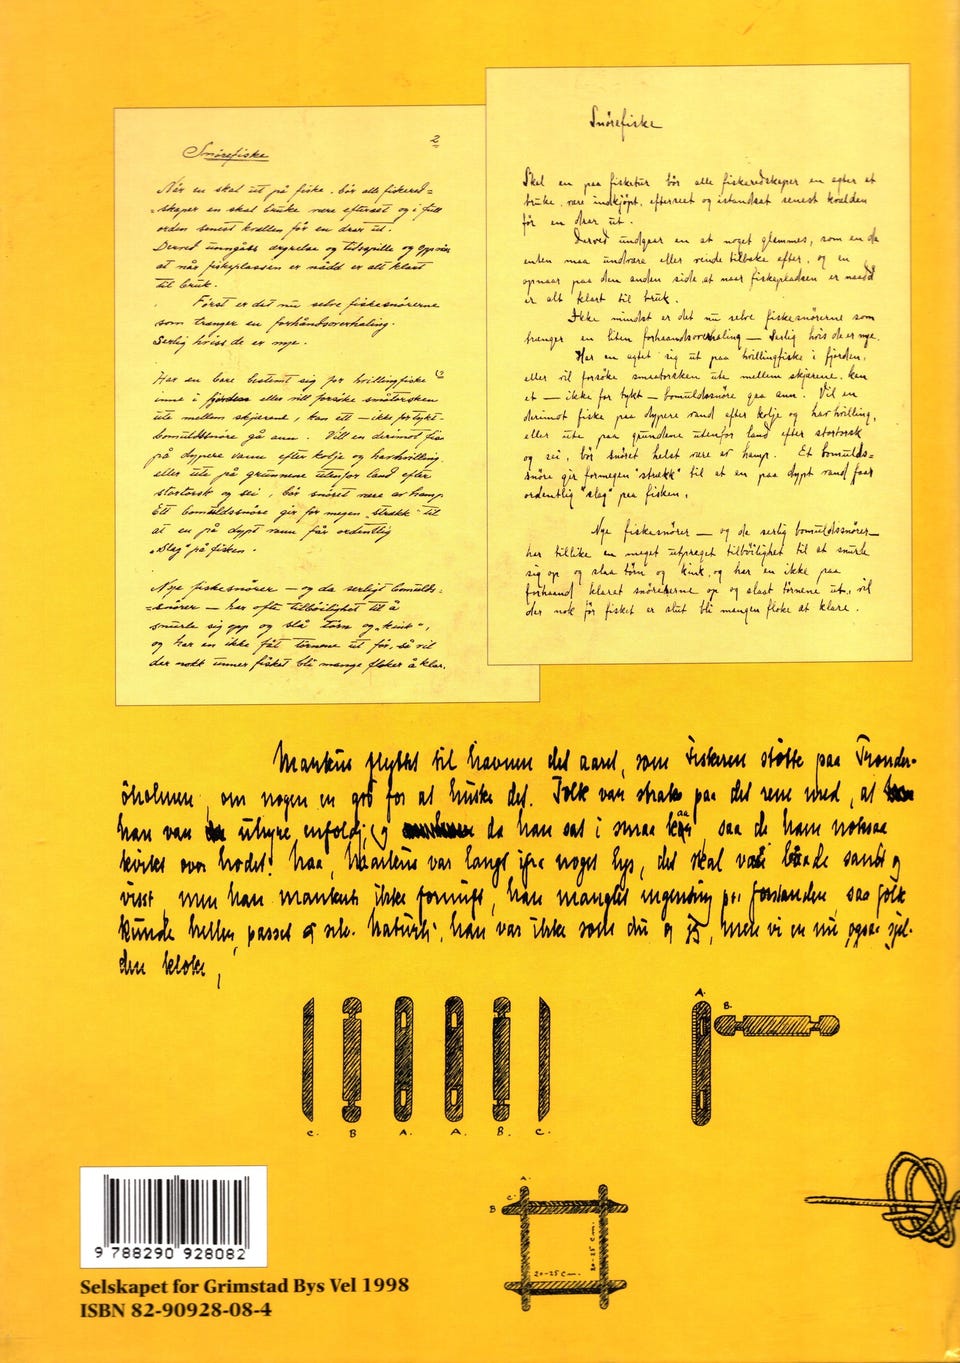 2
Snörefiske
Når en skal ut på fiske, bör alle fiskered=
=skaper en skal bruke være efterset og i full
orden senest kvællen för en drar ut.
Derved unngåes ærgrelse og tidsspille og opnår
at når fiskeplassen er nådd er alt klart
til bruk.
Först er det nu selve fiskesnörerne
som trænger en forhåndsoverhaling.
Serlig hviss de er nye.
Har en bare bestemt sig for hvillingfiske
inne i fjorden eller vill forsöke småtorsken
ute mellem skjærene, kan ett — ikke for tykt-
bomuldssnöre gå ann. Vill en derimot fiske
på dypere vann efter kolje og havhvilling.
eller ute på grunnene utenfor land efter
stortorsk og sei, bör snöret være av hamp.
Ett bomuldssnöre gir for megen "strekk" til
at en på dypt vann får ordentlig
"slag" på fisken.
Nye fiskesnörer — og da serligt bomulds=
=snörer — har ofte tilböilighet til å
snurle sig opp og slå törn og "kink",
og har en ikke fåt törnene ut för, så vil
der nokk unner fisket bli mange floker å klare.
Snörefiske
Skal en paa fisketur bör alle fiskeredskaper en agter at
bruke, være indkjöpt, efterseet og istandsat senest kvelden
för en drar ut.
Derved undgaar en at noget glemmes, som en da
enten maa undvære eller vende tilbake efter, og en
opnaar paa den anden side at naar fiskepladsen er naadd
er alt klart til bruk.
Ikke mindst er det nu selve fiskesnörerne som
trænger en liten forhaandsoverhaling — Serlig hvis de er nye.
Har en agtet sig ut paa hvillingfiske i fjorden,
eller vil forsöke smaatorsken ute mellem skjærene, kan
et — ikke for tykt — bomuldssnöre gaa ann. Vil en
derimot fiske paa dypere vand efter kolje og havhvilling,
eller ute paa grundene utenfor land efter stortorsk
og sei, bör snöret helst være av hamp. Et bomulds=
snöre gir formegen "strekk" til at en paa dypt vand faar
ordentlig "slag" paa fisken.
Nye fiskesnörer — og da serlig bomuldssnörer —
har tillike en meget utpræget tilböilighet til at snurle
sig op og slaa törn og kink, og har en ikke paa
forhaand klaret snörerne op og slaat törnene ut, vil
der nok för fisket er slut bli mangen floke at klare.
Markus flyttet til havnen det aaret, som Fiskeren stötte paa Trönder-
öholmen, om nogen en god for at huske det. Folk var straks paa det rene med, at
han var uhyre enfoldig, da han sat i smaa kaar, saa de ham noksaa
kvikt over hodet. Naa, Markus var langt ifra noget lys, det skal være baade sandt og
visst, men han manket ikke fornuft, han manglet ingenting paa forstanden, saa folk
kunde heller passet sig selv. Naturlig, han var ikke som du og jeg, men vi er nu ogsaa sjel-
den kloke,
C. B A. A. B. C.
A.
B.
A.
C.
B
20-25 cm.
20-25 cm.
9 788290 928082
Selskapet for Grimstad Bys Vel 1998
ISBN 82-90928-08-4